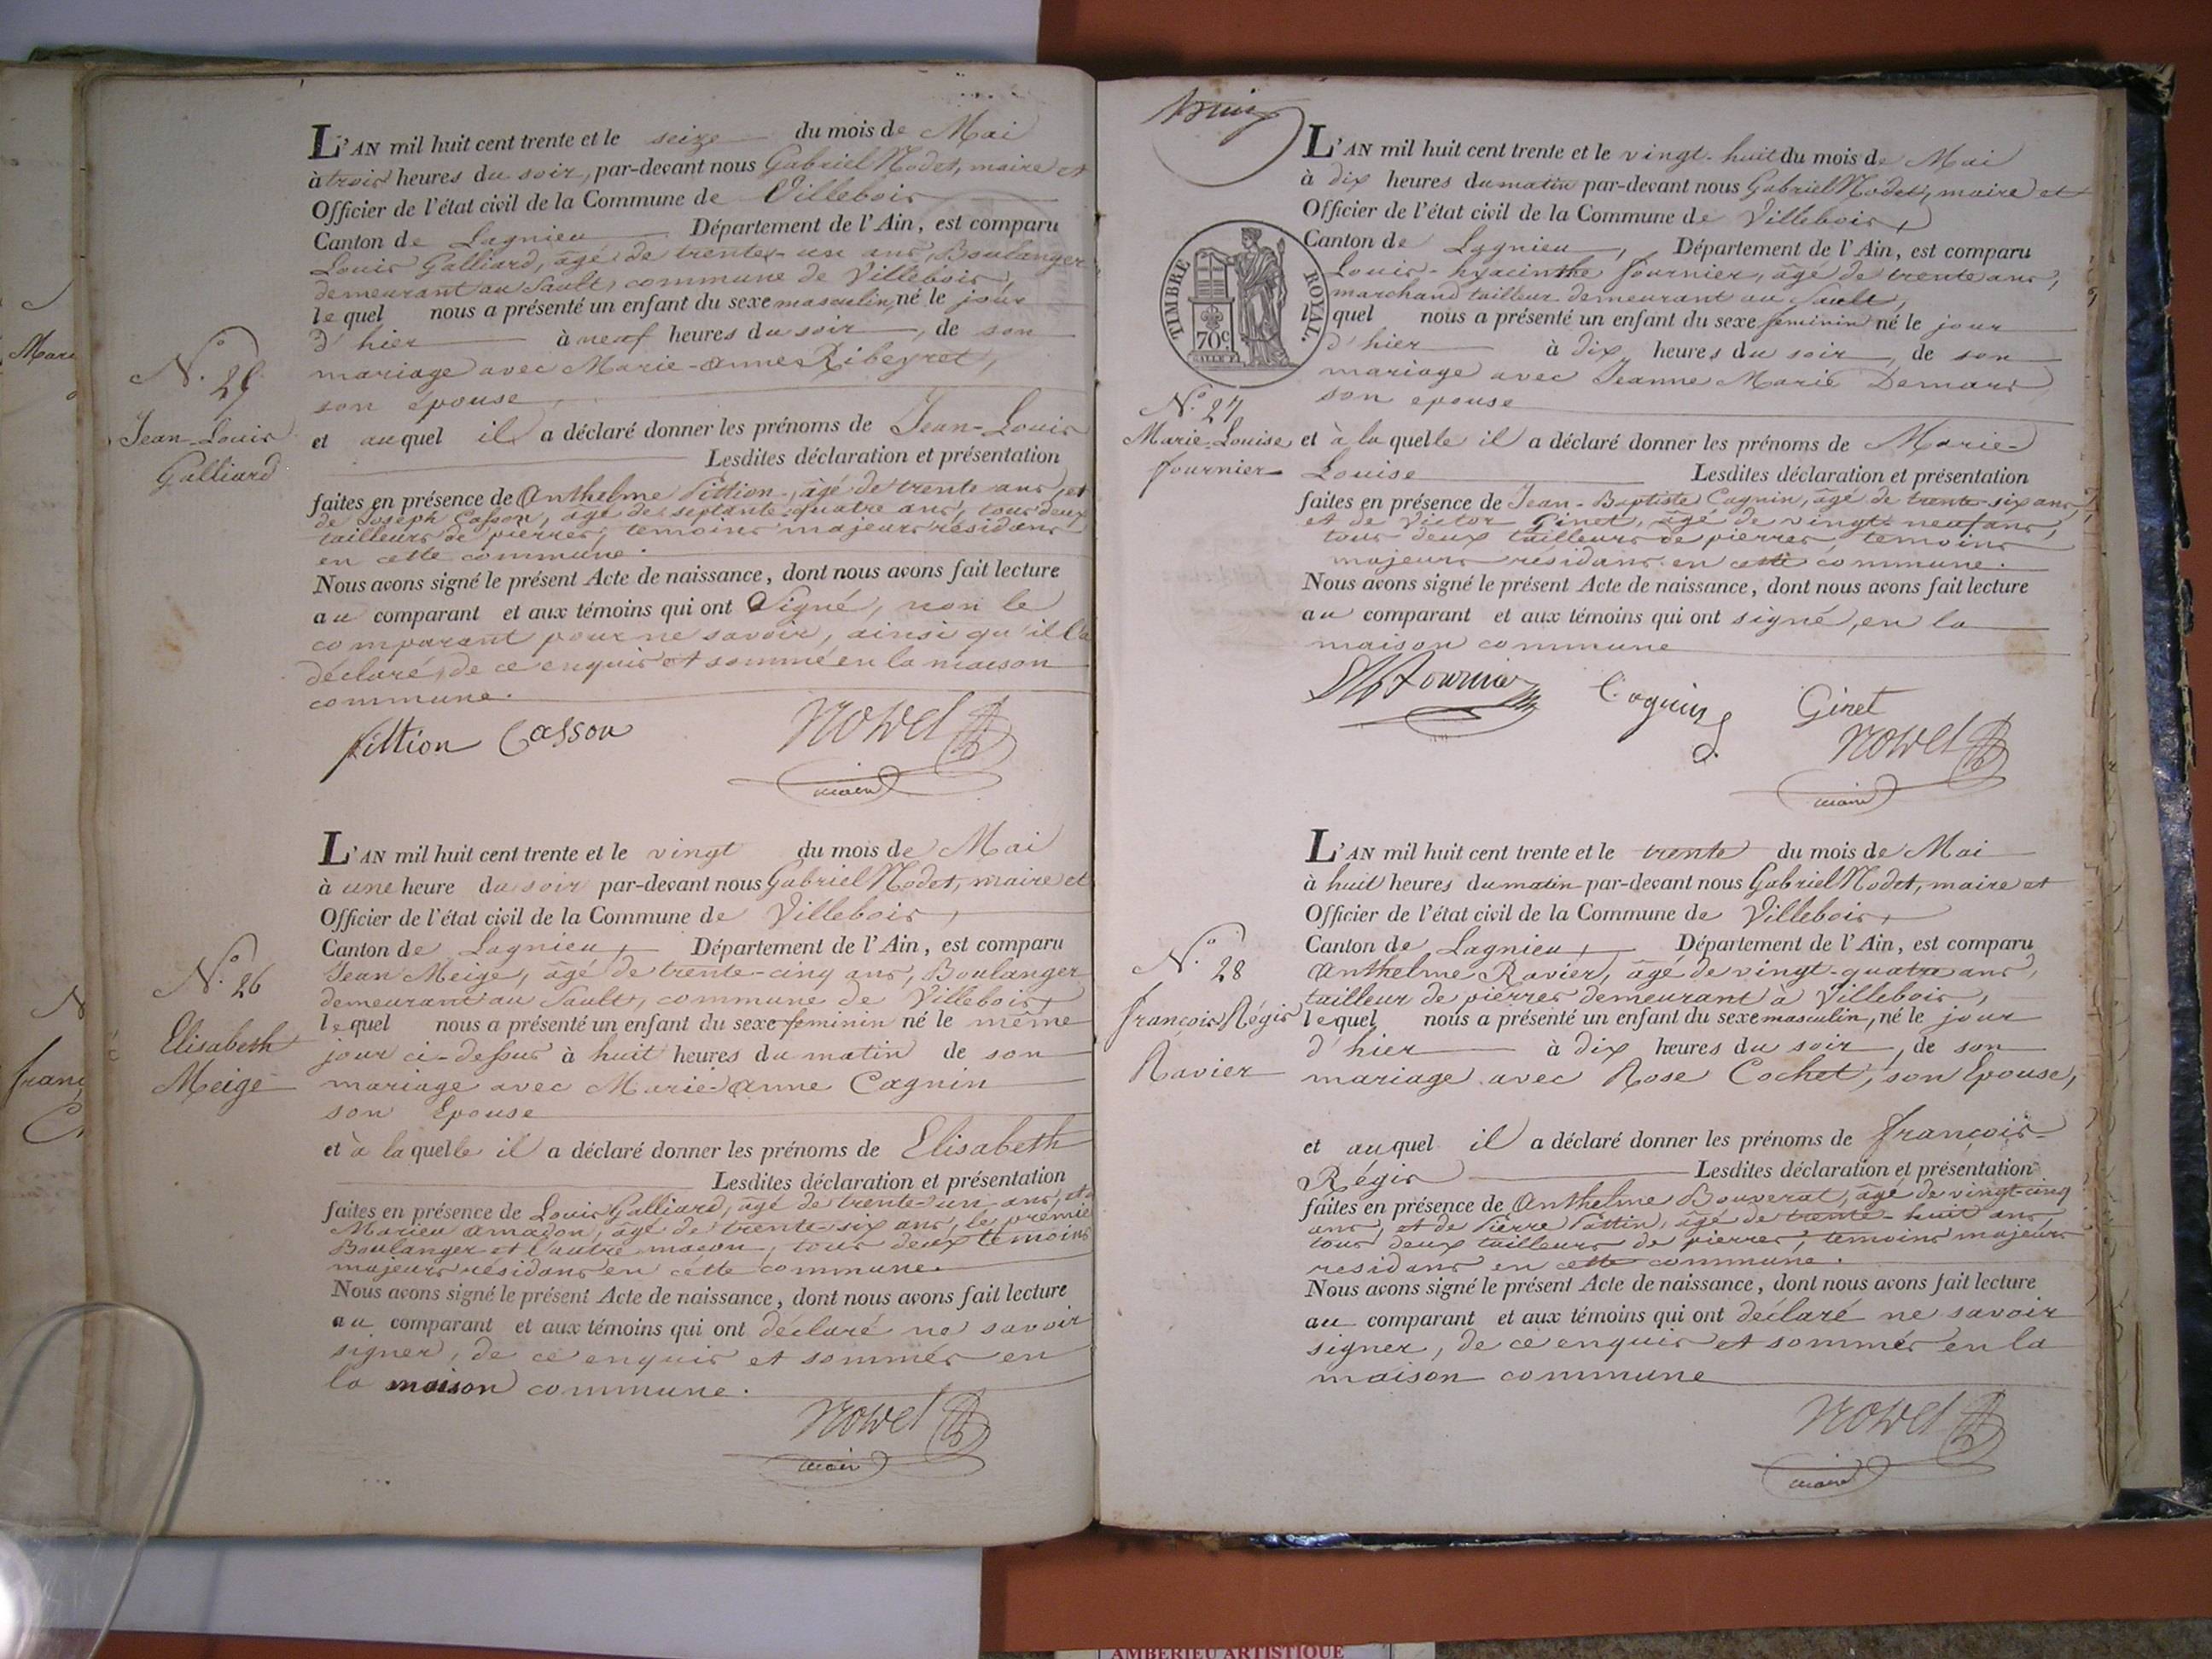 L'AN mil huit cent trente et le seize du mois de Mai
à trois heures du soir, par-devant nous Gabriel Nodet, maire et
Officier de l'état civil de la Commune de Villebois
Canton de Lagnieu Département de l'Ain, est comparu
Louis Galliard, âgé de trente-un ans, Boulanger
demeurant au Sault, commune de Villebois,
lequel nous a présenté un enfant du sexe masculin, né le jour
d'hier à neuf heures du soir, de son
mariage avec Marie-Anne Ribeyret,
son épouse
N.° 25
Jean-Louis
Galliard
et auquel il a déclaré donner les prénoms de Jean-Louis
Lesdites déclaration et présentation
faites en présence de Anthelme Pittion, âgé de trente ans, et
de Joseph Casson, âgé de septante-quatre ans, tous deux
tailleurs de pierres, temoins majeurs résidans
en cette commune.
Nous avons signé le présent Acte de naissance, dont nous avons fait lecture
au comparant et aux témoins qui ont Signé, non le
comparant pour ne savoir, ainsi qu'il l'a
déclaré, de ce enquis et sommé en la maison
commune.
Pittion Casson Nodet
maire
L'AN mil huit cent trente et le vingt du mois de Mai
à une heure du soir par-devant nous Gabriel Nodet, maire et
Officier de l'état civil de la Commune de Villebois,
Canton de Lagnieu, Département de l'Ain, est comparu
Jean Meige, âgé de trente-cinq ans, Boulanger
demeurant au Sault, commune de Villebois,
lequel nous a présenté un enfant du sexe feminin né le même
jour ci-dessus à huit heures du matin de son
mariage avec Marie-Anne Cagnin
son Epouse
N.° 26
Elisabeth
Meige
et à laquelle il a déclaré donner les prénoms de Elisabeth
Lesdites déclaration et présentation
faites en présence de Louis Galliard, âgé de trente-un ans, et
Marieu Amadon, âgé de trente-six ans, le premier
Boulanger et l'autre maçon, tous deux temoins
majeurs résidans en cette commune.
Nous avons signé le présent Acte de naissance, dont nous avons fait lecture
au comparant et aux témoins qui ont déclaré ne savoir
signer, de ce enquis et sommés en
la maison commune.
Nodet
maire
L'AN mil huit cent trente et le vingt-huit du mois de Mai
à dix heures du matin par-devant nous Gabriel Nodet, maire et
Officier de l'état civil de la Commune de Villebois,
Canton de Lagnieu, Département de l'Ain, est comparu
Louis-hyacinthe fournier, âgé de trente ans,
marchand tailleur demeurant au Sault,
lequel nous a présenté un enfant du sexe feminin né le jour
d'hier à dix heures du soir, de son
mariage avec Jeanne Marie Demars
son epouse
TIMBRE ROYAL.
70c.
N.° 27
Marie-Louise
fournier
et à laquelle il a déclaré donner les prénoms de Marie-
Louise Lesdites déclaration et présentation
faites en présence de Jean-Baptiste Cagnin, âgé de trente-six ans,
et de Victor Ginet, âgé de vingt-neuf ans,
tous deux tailleurs de pierres, temoins
majeurs résidans en cette commune.
Nous avons signé le présent Acte de naissance, dont nous avons fait lecture
au comparant et aux témoins qui ont signé, en la
maison commune
fournier Cagnin Ginet
Nodet
maire
L'AN mil huit cent trente et le trente du mois de Mai
à huit heures du matin par-devant nous Gabriel Nodet, maire et
Officier de l'état civil de la Commune de Villebois,
Canton de Lagnieu, Département de l'Ain, est comparu
Anthelme Ravier, âgé de vingt-quatre ans,
tailleur de pierres demeurant à Villebois,
lequel nous a présenté un enfant du sexe masculin, né le jour
d'hier à dix heures du soir, de son
mariage avec Rose Cochet, son Epouse,
N.° 28
françois Régis
Ravier
et auquel il a déclaré donner les prénoms de françois-
Régis Lesdites déclaration et présentation
faites en présence de Anthelme Bouverat, âgé de vingt-cinq
ans, et de Pierre Pattin, âgé de trente-huit ans,
tous deux tailleurs de pierres, temoins majeurs
residans en cette commune.
Nous avons signé le présent Acte de naissance, dont nous avons fait lecture
au comparant et aux témoins qui ont déclaré ne savoir
signer, de ce enquis et sommés en la
maison commune
Nodet
maire
AMBERIEU ARTISTIQUE